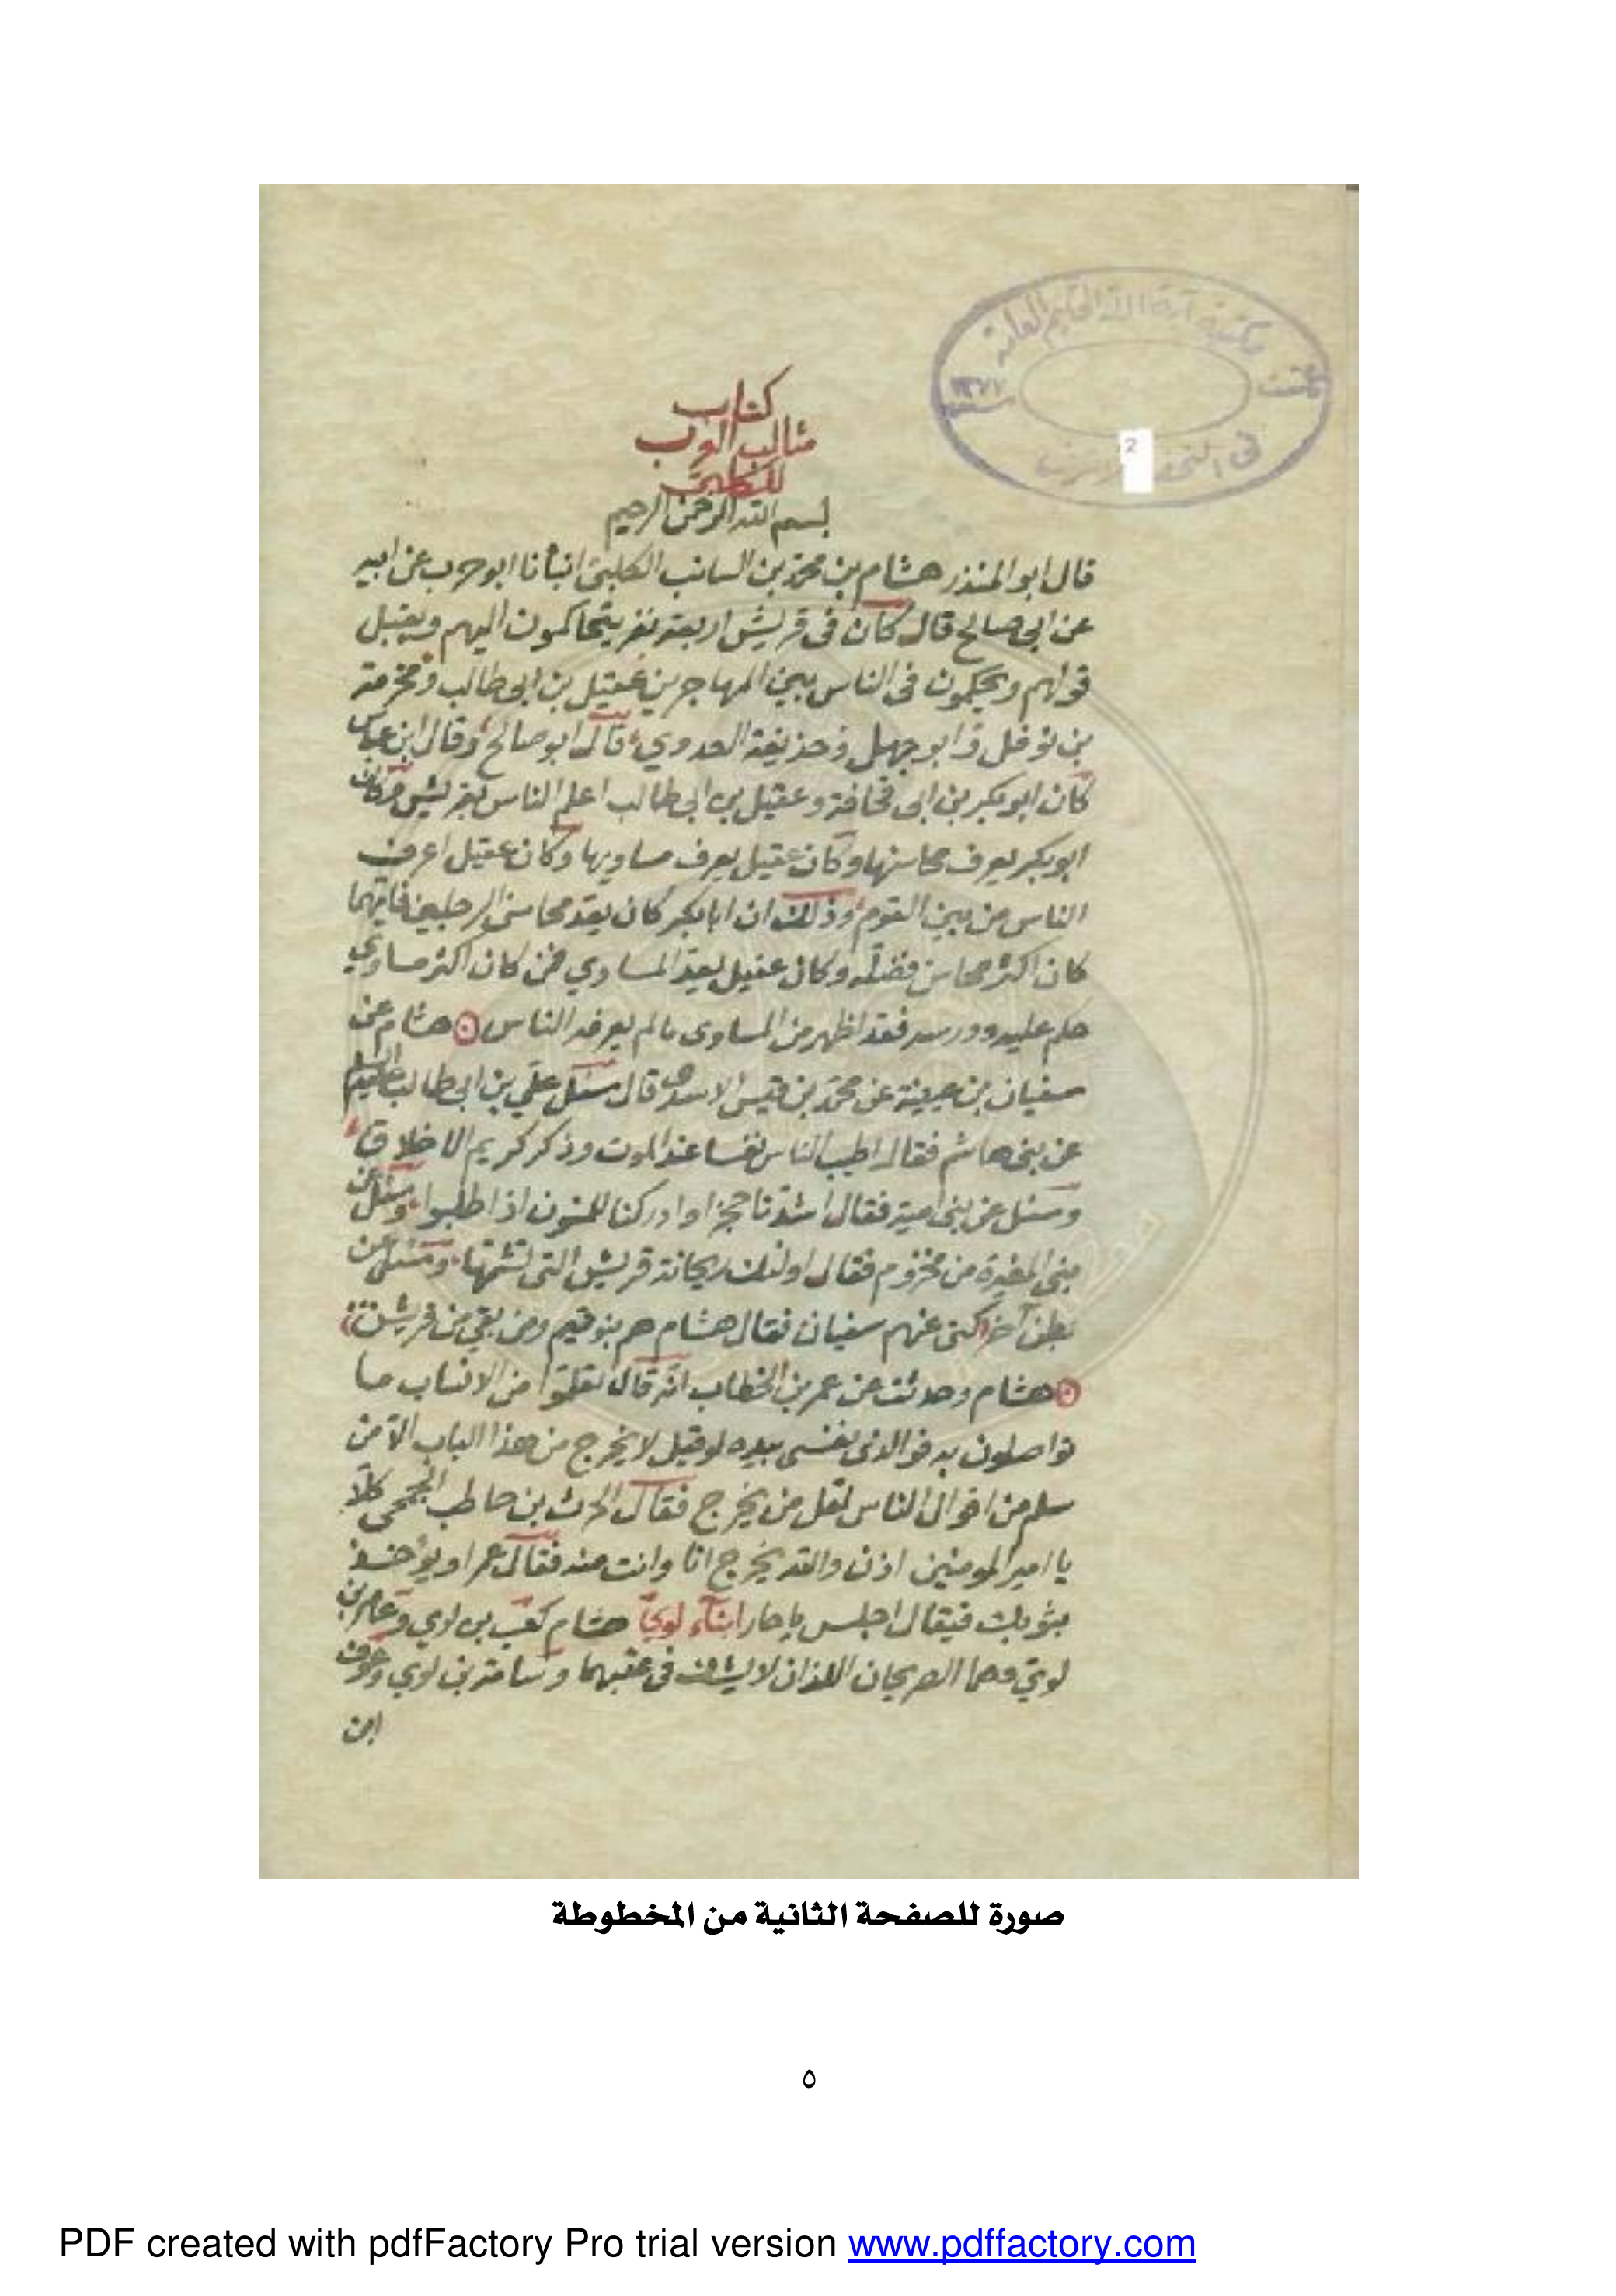 مكتبة آية الله الحكيم العامة
في النجف
2
كتاب
مثالب العرب
للكلبي
بسم الله الرحمن الرحيم
قال ابو المنذر هشام بن محمد بن السائب الكلبي انبأنا ابو حرب عن ابيه
عن ابي صالح قال كان في قريش اربعة نفر يتحاكمون اليهم ويقبل
قولهم ويحكمون في الناس بين المهاجرين عقيل بن ابي طالب ومخرمة
بن نوفل وابو جهل وحذيفة العدوي قال ابو صالح وقال ابن عباس
كان ابو بكر بن ابي قحافة وعقيل بن ابي طالب اعلم الناس بقريش وكان
ابو بكر يعرف محاسنها وكان عقيل يعرف مساويها وكان عقيل اعرف
الناس من بين القوم وذلك ان ابا بكر كان يعد محاسن الرجلين فايهما
كان اكثر محاسن فضله وكان عقيل يعد المساوي فمن كان اكثر مساوي
حكم عليه فقد اظهر من المساوي ما لم يعرفه الناس هشام عن
سفيان بن عيينة عن محمد بن قيس الاسدي قال سئل علي بن ابي طالب عليه السلام
عن بني هاشم فقال اطيب الناس نفسا عند الموت وذكر كريم الاخلاق
وسئل عن بني امية فقال اشدنا حجزا وادركنا للشون اذا طلبوا وسئل عن
بني المغيرة من مخزوم فقال اولئك ريحانة قريش التي تشمها وسئل عن
بطن آخر كنى عنهم سفيان فقال هشام هم بنو تيم ومن بقي من قريش
هشام وحدثت عن عمر بن الخطاب انه قال تعلموا من الانساب ما
تواصلون به فوالذي نفسي بيده لو قيل لا يخرج من هذا الباب الا من
سلم من اقوال الناس لقل من يخرج فقال الحرث بن حاطب الجمحي كلا
يا امير المومنين اذن والله يخرج انا وانت منه فقال عمر او يؤخذ
بثوبك فيقال اجلس يا حار ابناء لوي هشام كعب بن لوي وعامر بن
لوي وهما الصريحان اللذان لا يشك في عقبهما وسامة بن لوي وعوف
ابن
صورة للصفحة الثانية من المخطوطة
٥
PDF created with pdfFactory Pro trial version www.pdffactory.com